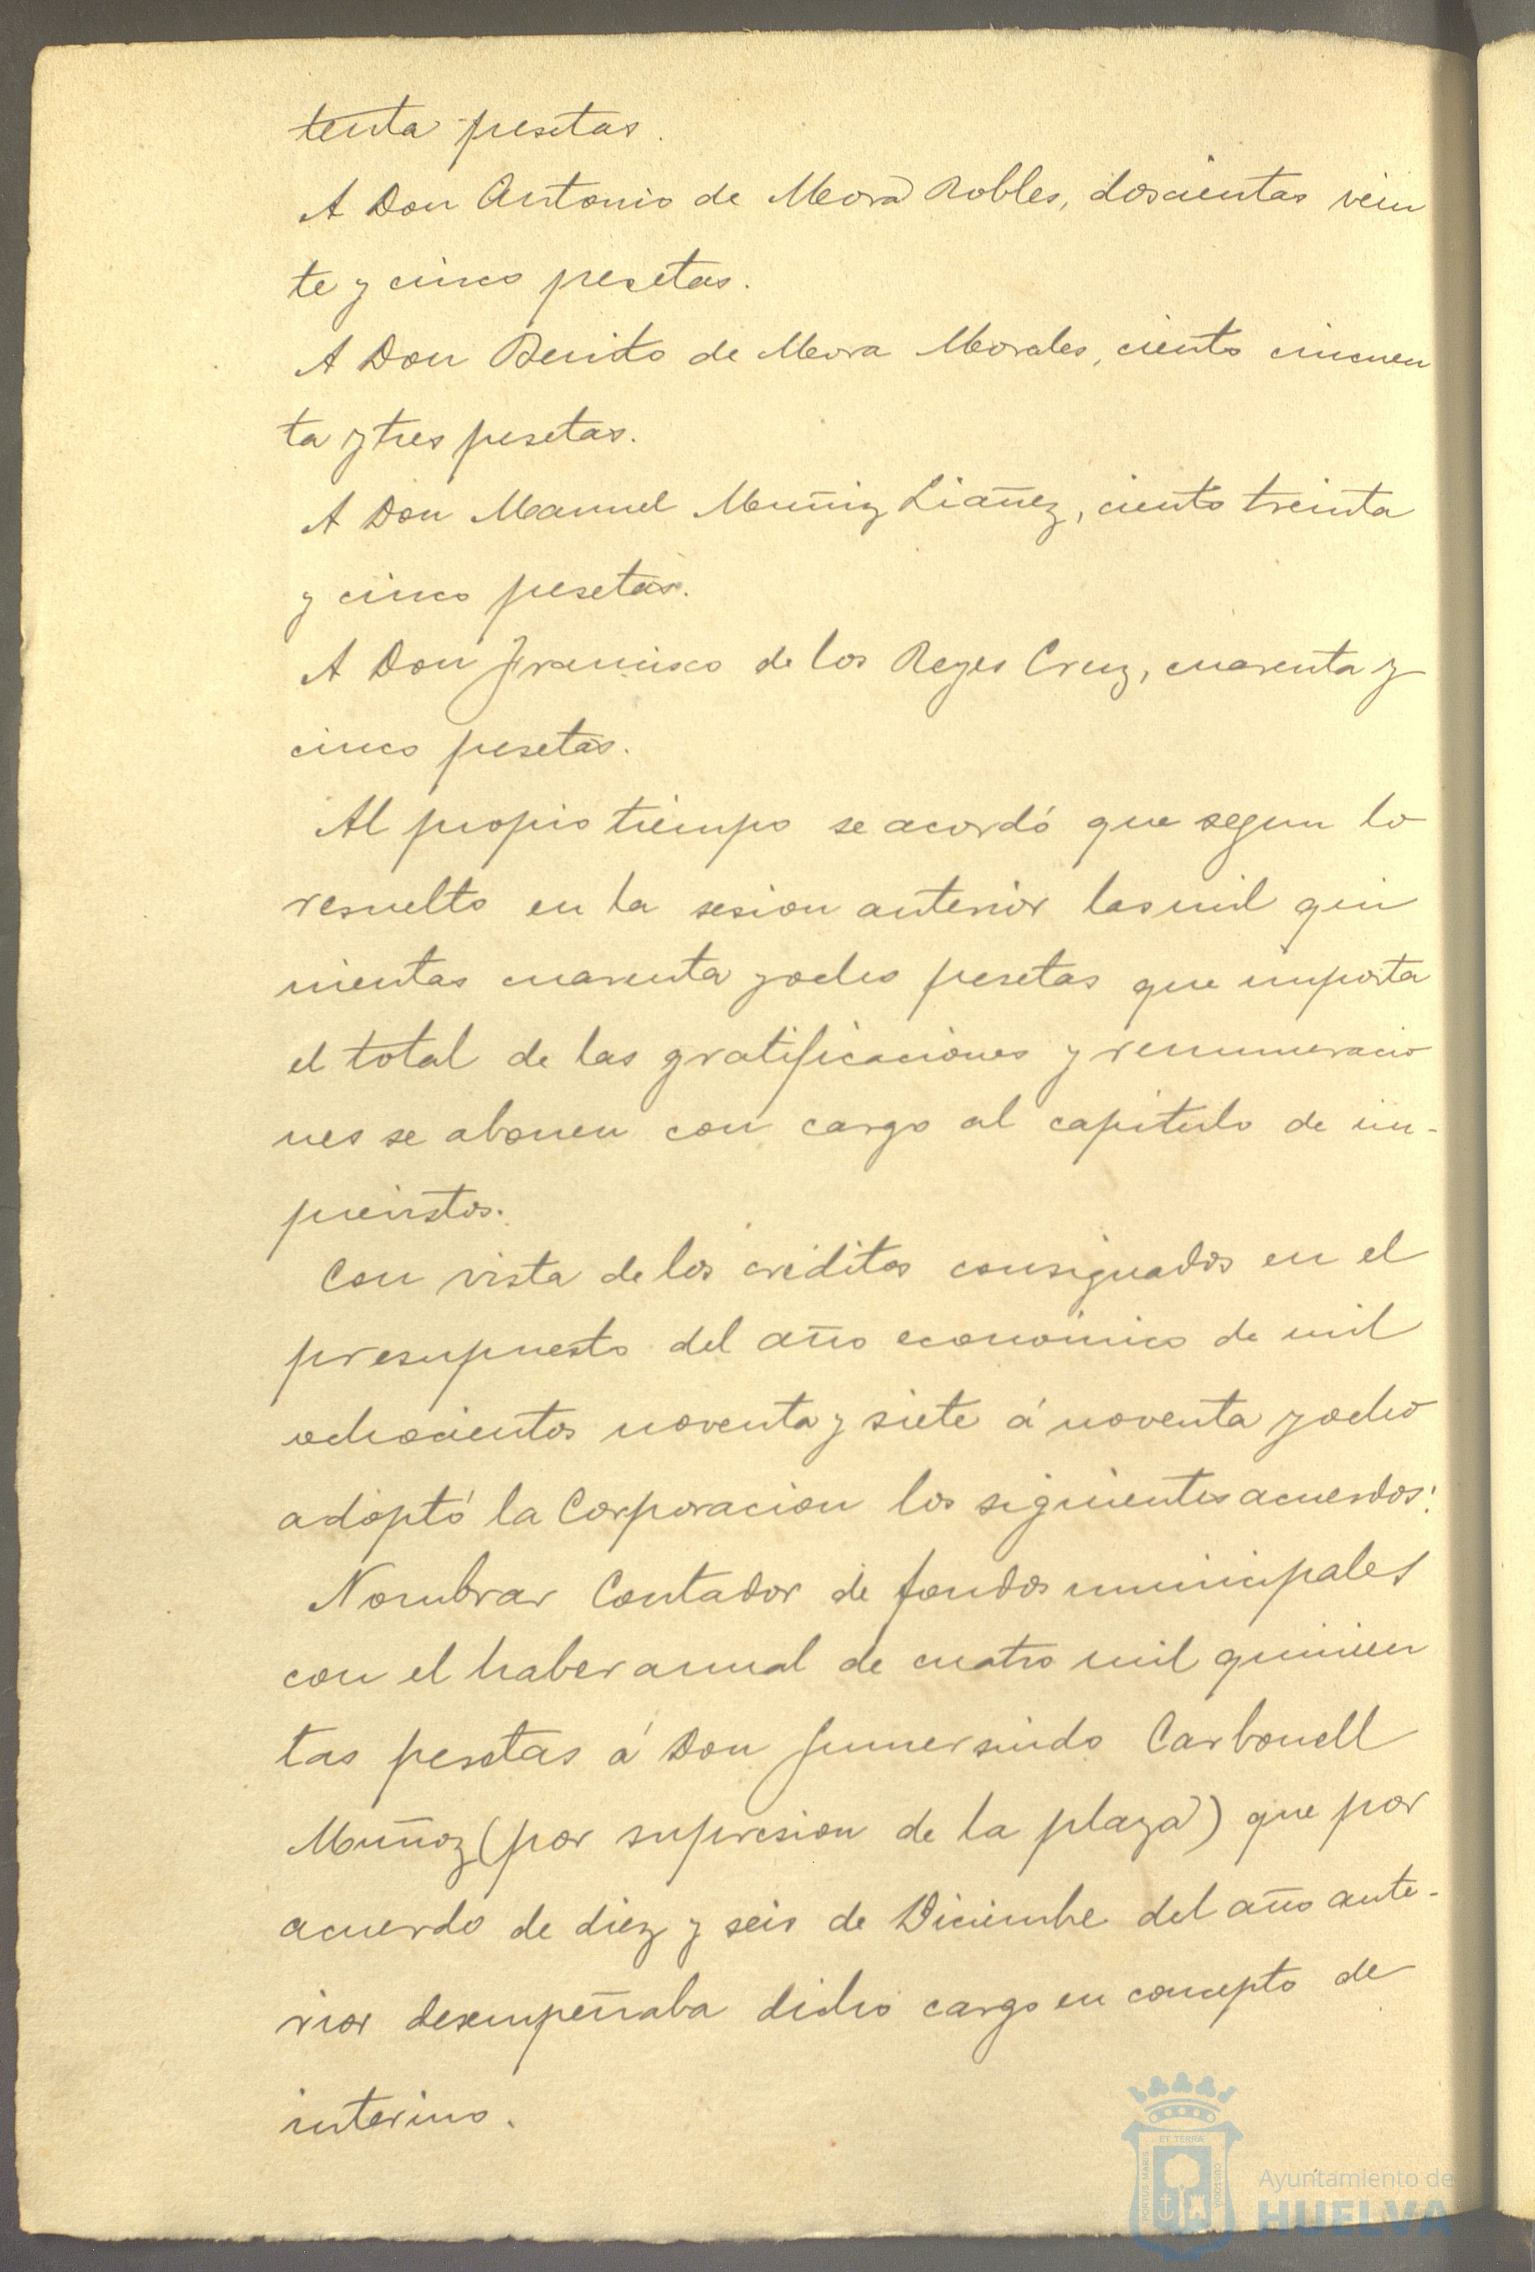 tenta pesetas.
A Don Antonio de Mora Robles, doscientas vein
te y cinco pesetas.
A Don Benito de Mora Morales, ciento cincuen
ta y tres pesetas.
A Don Manuel Muñiz Liañez, ciento treinta
y cinco pesetas.
A Don Francisco de los Reyes Cruz, cuarenta y
cinco pesetas.
Al propio tiempo se acordó que segun lo
resuelto en la sesion anterior las mil qui
nientas cuarenta y ocho pesetas que importa
el total de las gratificaciones y remuneracio
nes se abonen con cargo al capitulo de im-
previstos.
Con vista de los creditos consignados en el
presupuesto del año económico de mil
ochocientos noventa y siete á noventa y ocho
adoptó la Corporacion los siguientes acuerdos:
Nombrar Contador de fondos municipales
con el haber anual de cuatro mil quinien
tas pesetas á Don Gumersindo Carbonell
Muñoz (por supresion de la plaza) que por
acuerdo de diez y seis de Diciembre del año ante-
rior desempeñaba dicho cargo en concepto de
interino.
PORTUS MARIS
ET TERRA
CUSTODIA
Ayuntamiento de
HUELVA